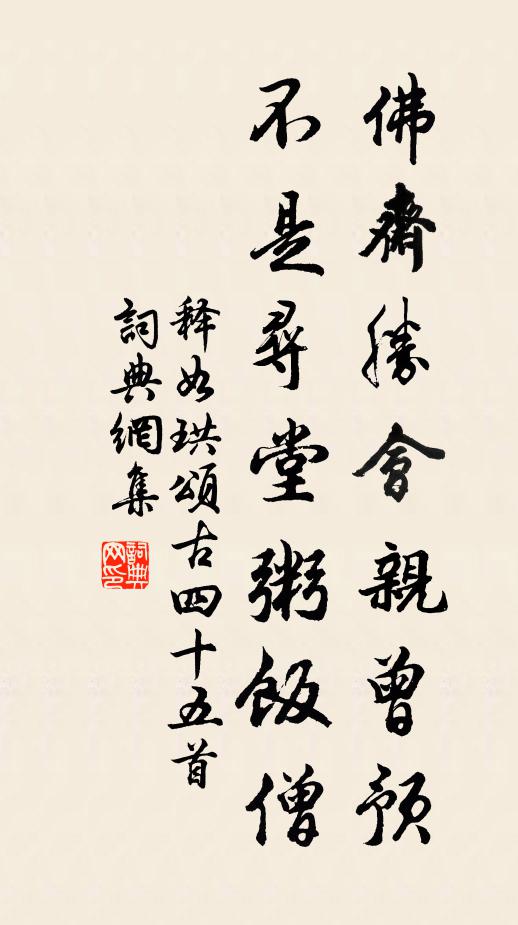 佛齋勝會親曾預
不是尋堂粥飯僧
释如珙頌古四十五首
詞典網集
詞典网印